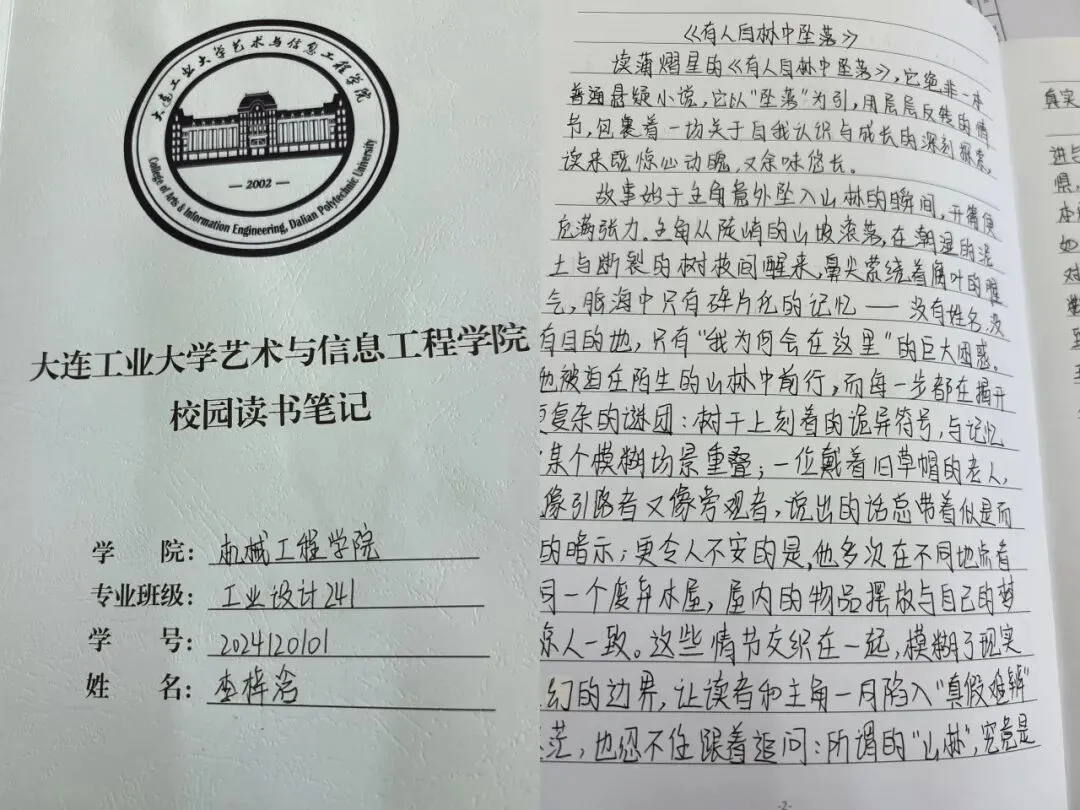 大连工业大学艺术与信息工程学院
2002
College of Arts & Information Engineering, Dalian Polytechnic University
大连工业大学艺术与信息工程学院
校园读书笔记
学 院：机械工程学院
专业班级：工业设计241
学 号：2024120101
姓 名：
《有人自林中坠落》
读蒲熠星的《有人自林中坠落》，它绝非一本
普通悬疑小说，它以“坠落”为引，用层层反转的情
节，包裹着一场关于自我认识与成长的深刻探索，
读来既惊心动魄，又余味悠长。
故事始于主角意外坠入山林的瞬间，开篇便
充满张力。主角从陡峭的山坡滚落，在潮湿的泥
土与断裂的树枝间醒来，鼻尖萦绕着腐叶的腥
气，脑海中只有碎片化的记忆——没有姓名，没
有目的地，只有“我为何会在这里”的巨大困惑。
他被迫在陌生的山林中前行，而每一步都在揭开
更复杂的谜团：树干上刻着的诡异符号，与记忆
某个模糊场景重叠；一位戴着旧草帽的老人，
像引路者又像旁观者，说出的话总带着似是而
的暗示；更令人不安的是，他多次在不同地点看
同一个废弃木屋，屋内的物品摆放与自己的梦
惊人一致。这些情节交织在一起，模糊了现实
幻的边界，让读者和主角一同陷入“真假难辨”
茫，也忍不住跟着追问：所谓的“山林”，究竟是
-2-
真实